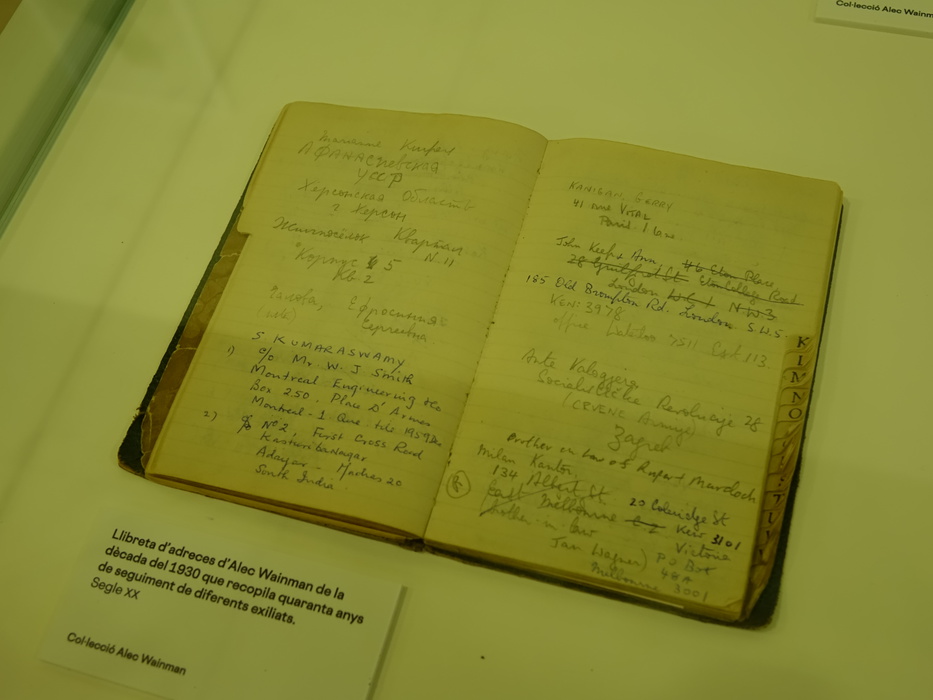 Col·lecció Alec Wainm
Афанасиевская
УССР
Херсонская Область
г. Херсон
Квартал
N. 11
Корпус 5
Кв 2
Сергеевна
S KUMARASWAMY
1) c/o Mr W. J Smith
Montreal Engineering
Box 250. Place D'Armes
Montreal - 1 Que. till 1959
2) No 2, First Cross Road
Kasturibanagar
Adayar - Madras 20
South India
KANIGAN, GERRY
41 rue VITAL
Paris 16
John Keep & Ann, Eton Place
28 Guilford St Eton College Road
London W C 1 N W 3
185 Old Brompton Rd. London. S.W.5.
KEN: 3978
office 7511 Ext 113
Ante
Socialističke Revolucije 28
(CRVENE Armije)
Zagreb
Brother in Law of Rupert Murdoch
Milan Kantor
134 Albert St 20 Coleridge St
East Melbourne C2 Kew 3101
brother in law Victoria
Jan Wagner) P O Box
48A
Melbourne 3001
K
Llibreta d'adreces d'Alec Wainman de la
dècada del 1930 que recopila quaranta anys
de seguiment de diferents exiliats.
Segle XX
Col·lecció Alec Wainman